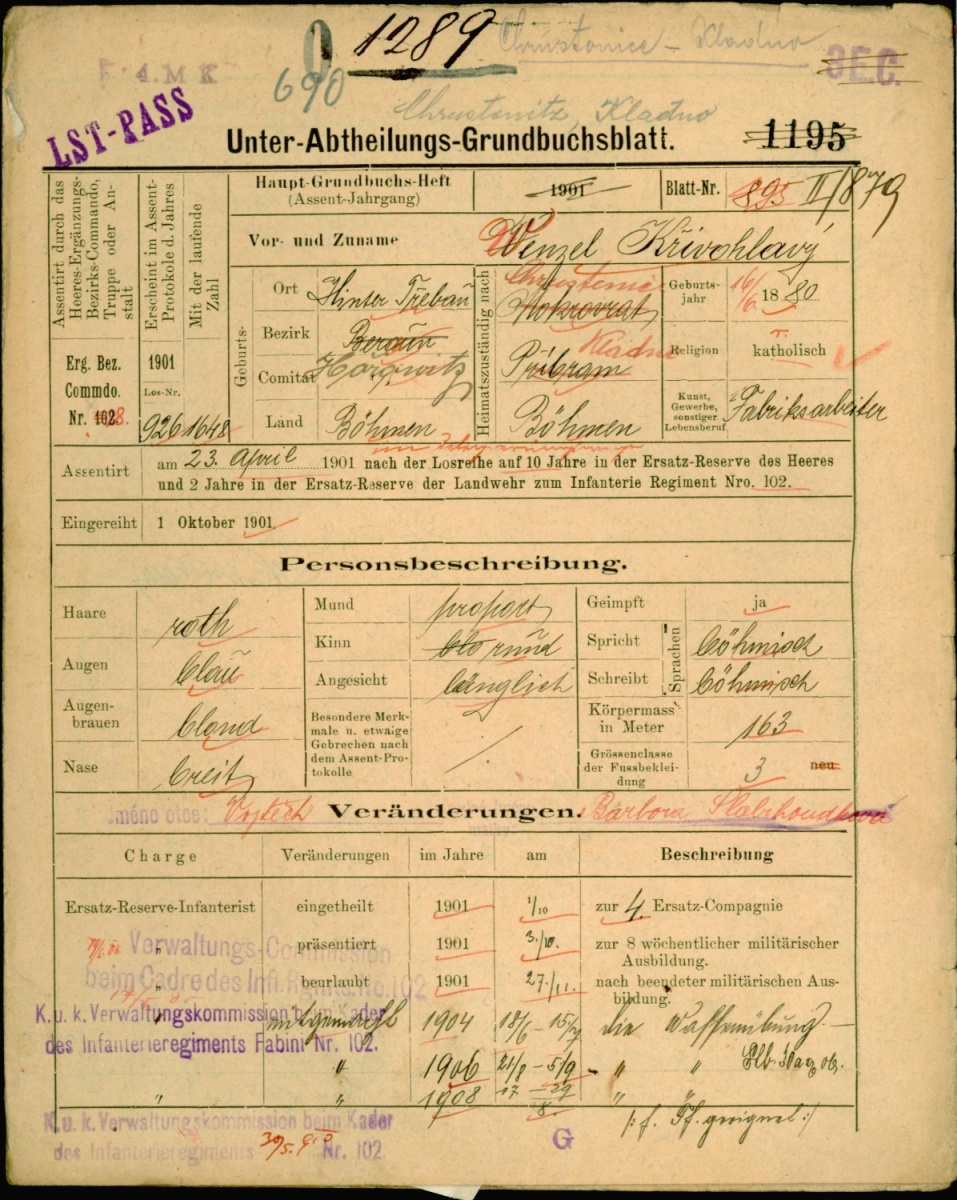 1289
Chrustenice – Kladno
690
4. M K
3E.C.
Chrustenitz, Kladno
LST-PASS
Unter-Abtheilungs-Grundbuchsblatt.
1195
Assentirt durch das Heeres-Ergänzungs-Bezirks-Commando, Truppe oder Anstalt
Erscheint im Assent-Protokole d. Jahres
Mit der laufende Zahl
Haupt-Grundbuchs-Heft
(Assent-Jahrgang)
1901
Blatt-Nr.
895 II/879
Vor- und Zuname
Wenzel Křivohlavý
Geburts-
Ort
Hinter Třebaň
Heimatszuständig nach
Chrustenic
Mokrovrat
Geburts-
jahr
16/6 1880
Bezirk
Beraun
Kladno
Religion
r.
katholisch
Comitat
Hořowitz
Přibram
Erg. Bez.
Commdo.
Nr. 102
8.
1901
Los-Nr.
926
1648
Land
Böhmen
Böhmen
Kunst,
Gewerbe,
sonstiger
Lebensberuf
Fabriksarbeiter
Assentirt
am 23. April 1901 nach der Losreihe auf 10 Jahre in der Ersatz-Reserve des Heeres
und 2 Jahre in der Ersatz-Reserve der Landwehr zum Infanterie Regiment Nro. 102.
Eingereiht
1 Oktober 1901
Personsbeschreibung.
Haare
roth
Mund
proport
Geimpft
ja
Augen
blau
Kinn
rund
Spricht
Sprachen
böhmisch
Augen-
brauen
blond
Angesicht
länglich
Schreibt
böhmisch
Nase
breit
Besondere Merk-
male u. etwaige
Gebrechen nach
dem Assent-Pro-
tokolle
/
Körpermass
in Meter
163
Grössenclasse
der Fussbeklei-
dung
3
neu
Jméno otce: Vojtěch
Veränderungen.
Barbora
Charge
Veränderungen
im Jahre
am
Beschreibung
Ersatz-Reserve-Infanterist
eingetheilt
1901
1/10
zur 4. Ersatz-Compagnie
"
präsentiert
1901
3./10.
zur 8 wöchentlicher militärischer
Ausbildung.
Verwaltungs-Commission
beim Cadre des Inft. Rgmts. No. 102
"
beurlaubt
1901
27./11.
nach beendeter militärischen Aus-
bildung.
K. u. k. Verwaltungskommission beim Kader
des Infanterieregiments Fabini Nr. 102.
"
mitgemacht
1904
18/6 – 15/7
die Waffenübung
"
1906
21/8 – 5/9
" "
"
"
1908
17 – 29
8.
"
/: f. Ff. geeignet :/
K. u. k. Verwaltungskommission beim Kader
des Infanterieregiments Nr. 102.
G